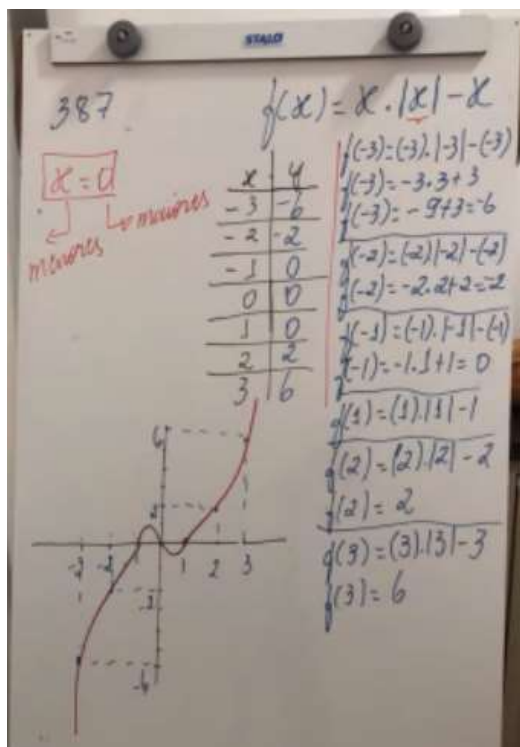 STALO
387
f(x) = x . |x| - x
x = 0
menores
maiores
x y
-3 -6
-2 -2
-1 0
0 0
1 0
2 2
3 6
f(-3)=(-3).|-3|-(-3)
f(-3)=-3.3+3
f(-3)=-9+3=-6
f(-2)=(-2).|-2|-(-2)
f(-2)=-2.2+2=-2
f(-1)=(-1).|-1|-(-1)
f(-1)=-1.1+1=0
f(1)=(1).|1|-1
f(2)=(2).|2|-2
f(2)=2
f(3)=(3).|3|-3
f(3)=6
6
2
-3 -2 1 2 3
-2
-6